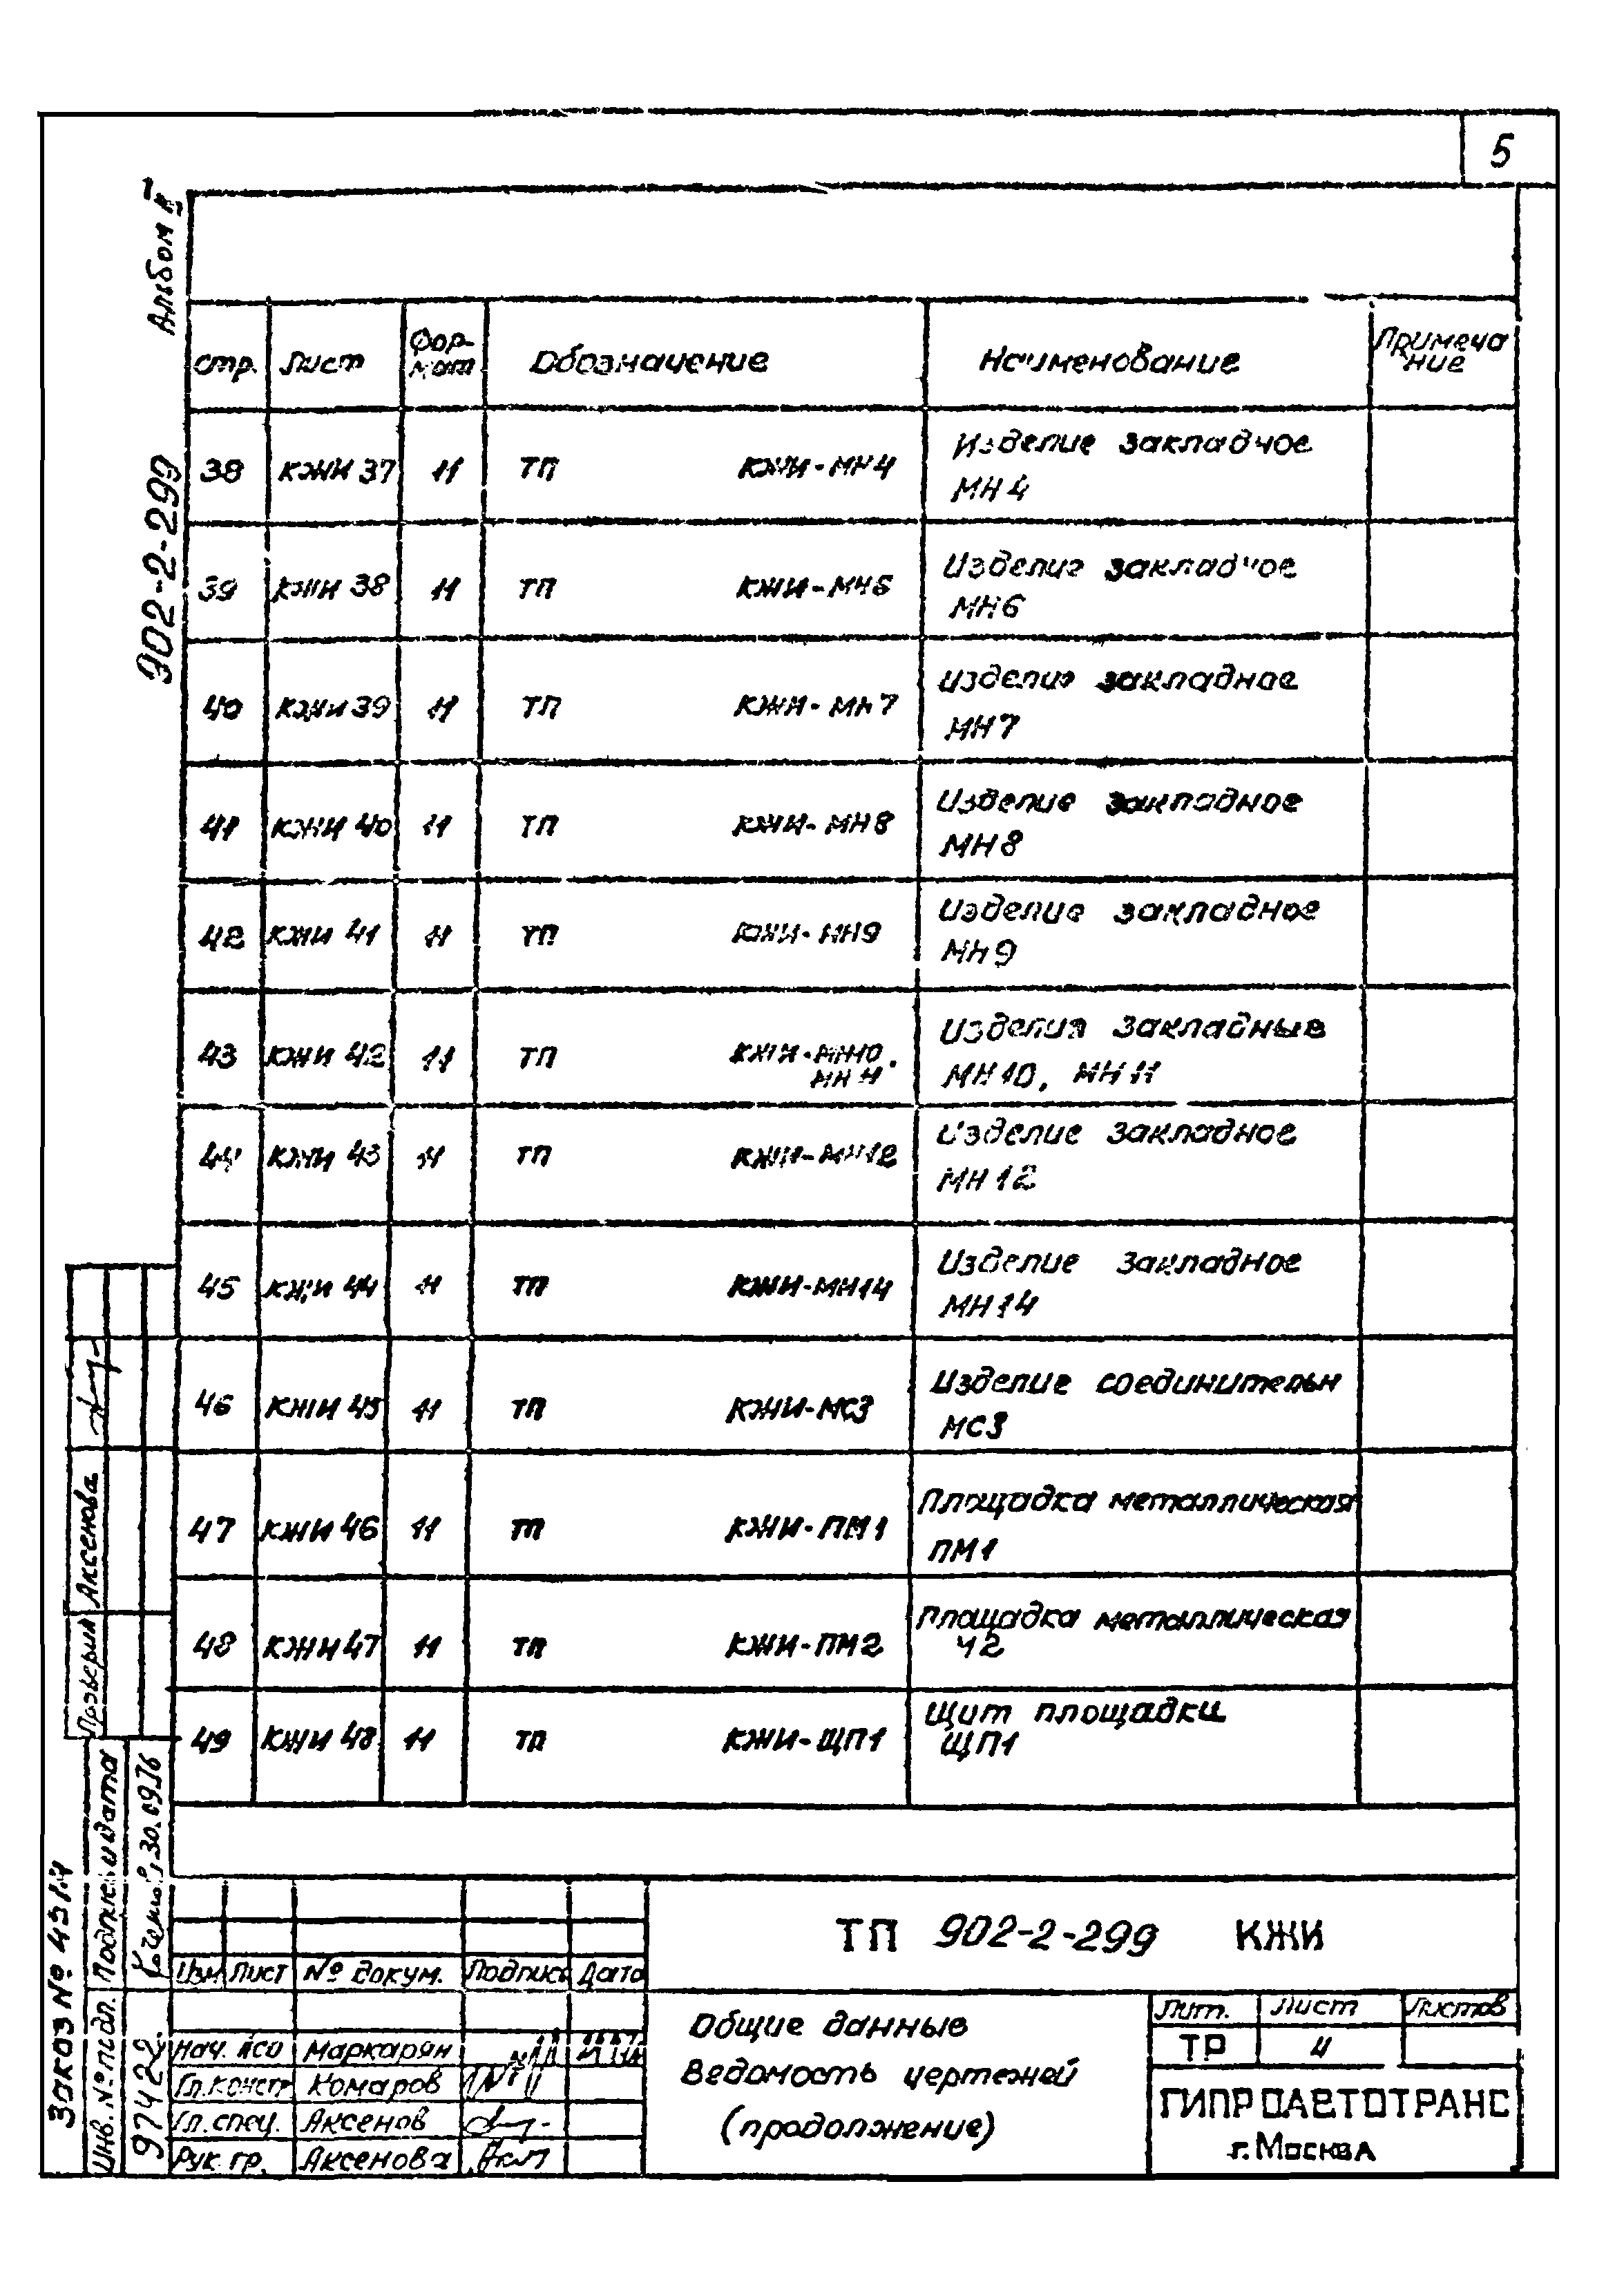 5
Альбом
902-2-299
Стр. Лист Фор- Обозначение Наименование Примеча
мат ние
38 КЖИ 37 11 ТП КЖИ-МН4 Изделие закладное
МН4
39 КЖИ 38 11 ТП КЖИ-МН6 Изделие закладное
МН6
40 КЖИ 39 11 ТП КЖИ-МН7 Изделие закладное
МН7
41 КЖИ 40 11 ТП КЖИ-МН8 Изделие закладное
МН8
42 КЖИ 41 11 ТП КЖИ-МН9 Изделие закладное
МН9
43 КЖИ 42 11 ТП КЖИ-МН10, Изделия закладные
МН11 МН10, МН11
44 КЖИ 43 11 ТП КЖИ-МН12 Изделие закладное
МН12
45 КЖИ 44 11 ТП КЖИ-МН14 Изделие закладное
МН14
46 КЖИ 45 11 ТП КЖИ-МС3 Изделие соединительн
МС3
47 КЖИ 46 11 ТП КЖИ-ПМ1 Площадка металлическая
ПМ1
48 КЖИ 47 11 ТП КЖИ-ПМ2 Площадка металлическая
42
49 КЖИ 48 11 ТП КЖИ-ЩП1 Щит площадки
ЩП1
Проверил Аксенова
Подпись и дата
30.09.76
Инв. № подл.
97422
Заказ №
ТП 902-2-299 КЖИ
Изм Лист № докум. Подпись Дата
Нач. АСО Маркарян
Гл.конст Комаров
Гл.спец. Аксенов
Рук. гр. Аксенова
Общие данные
Ведомость чертежей
(продолжение)
Лит. Лист Листов
ТР 4
ГИПРОАВТОТРАНС
г. Москва